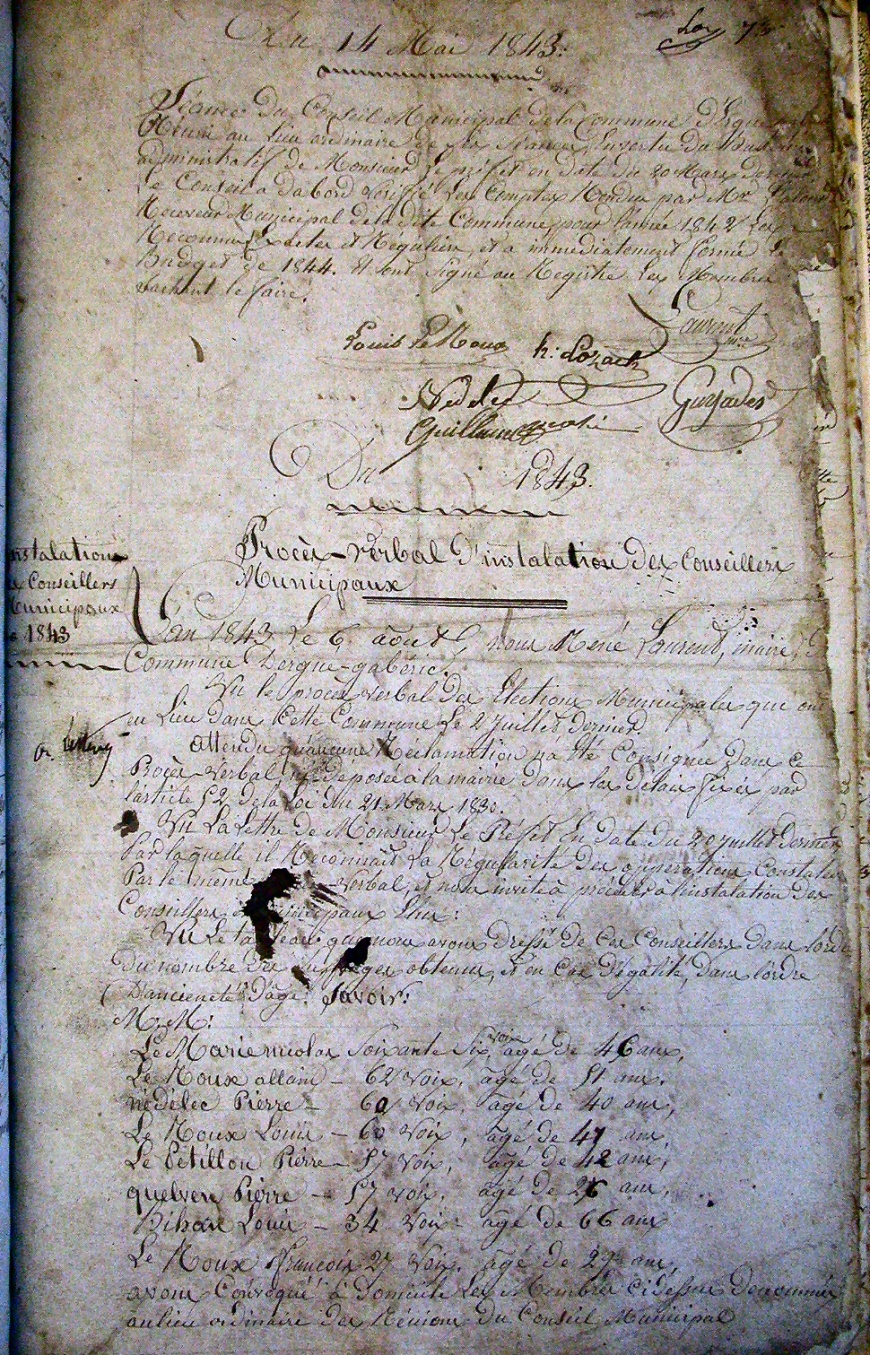 Du 14 Mai 1843.
73
Séance du Conseil Municipal de la Commune d'Ergué
Réuni au lieu ordinaire de ses séances, En vertu du
administratif de Monsieur le préfet en date du 20 Mars dernier
Le Conseil a dabord vérifié les Comptes Rendus par Mr
Receveur Municipal de la dite Commune pour l'année 1842 Les
Reconnus Exactes et Réguliers, et a immédiatement formé le
Budget de 1844. Et ont signé au Registre les Membres
sachant le faire.
Laurent
mre
Louis Le Roux h: Lozach
Nédélec
Guillaume
Du 1843.
Procès-verbal d'instalation des Conseillers
Municipaux
instalation
Conseillers
Municipaux
1843
L'an 1843 Le 6 août, nous René Laurent, maire, de
Commune Dergué-gabéric.
Vu le procès verbal des Elections Municipales qui ont
eu Lieu dans Cette Commune Le 2 juillet dernier.
attendu qu'aucune Réclamation n'a été Consignée dans ce
Procès-verbal, ni déposée à la mairie dans les délais fixés par
l'article 52 de la Loi du 21 Mars 1830.
Vu La Lettre de Monsieur Le Préfet En date du 20 juillet dernier
Par laquelle il Reconnaît La Régularité des opperations Constatées
Par le même verbal, et nous invite à procéder à l'instalation des
Conseillers Municipaux Elus:
Vu Le tableau que nous avons dressé de Ces Conseillers dans l'ordre
du nombre des suffrages obtenus, et en Cas d'égalité, dans l'ordre
D'ancienneté d'age: Savoir:
M.M:
Le Marie nicolas Soixante Six voix agé de 46 ans,
Le Roux allain - 62 voix, agé de 51 ans.
nédélec Pierre - 60 voix, agé de 40 ans,
Le Roux Louis - 60 voix, agé de 41 ans,
Le Pétillon Pierre - 57 voix, agé de 42 ans,
quelven Pierre - 57 voix, agé de 26 ans,
Bihan Louis - 34 voix - agé de 66 ans
Le Roux François 27 Voix. agé de 27 ans,
avons Convoqué à domicile Les Membres cidessus denommés
au lieu ordinaire des Réunions du Conseil Municipal